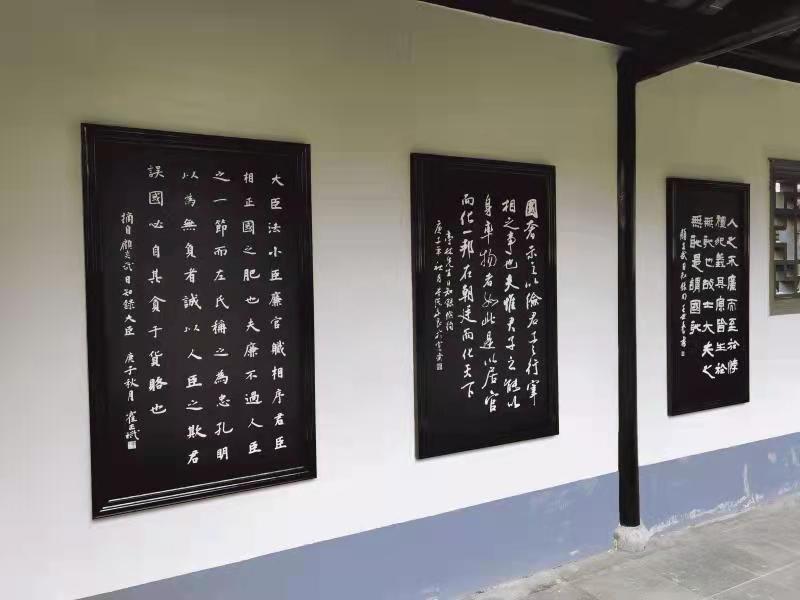 大臣法小臣廉官職相序君臣
相正國之肥也夫廉不過人臣
之一節而左氏稱之為忠孔明
以為無負者誠以人臣之欺君
誤國必自其貪于貨賂也
摘自顧炎武日知錄大臣 庚子秋月
國奢示之以儉君子之行宰
相之事也夫惟君子之能以
身率物者如此是以居官
而化一邦在朝廷而化天下
亭林先生日知錄
庚子年秋月
人之不廉而至於悖
禮犯義其原皆生於
無恥也故士大夫之
無恥是謂國恥
顧炎武日知錄句